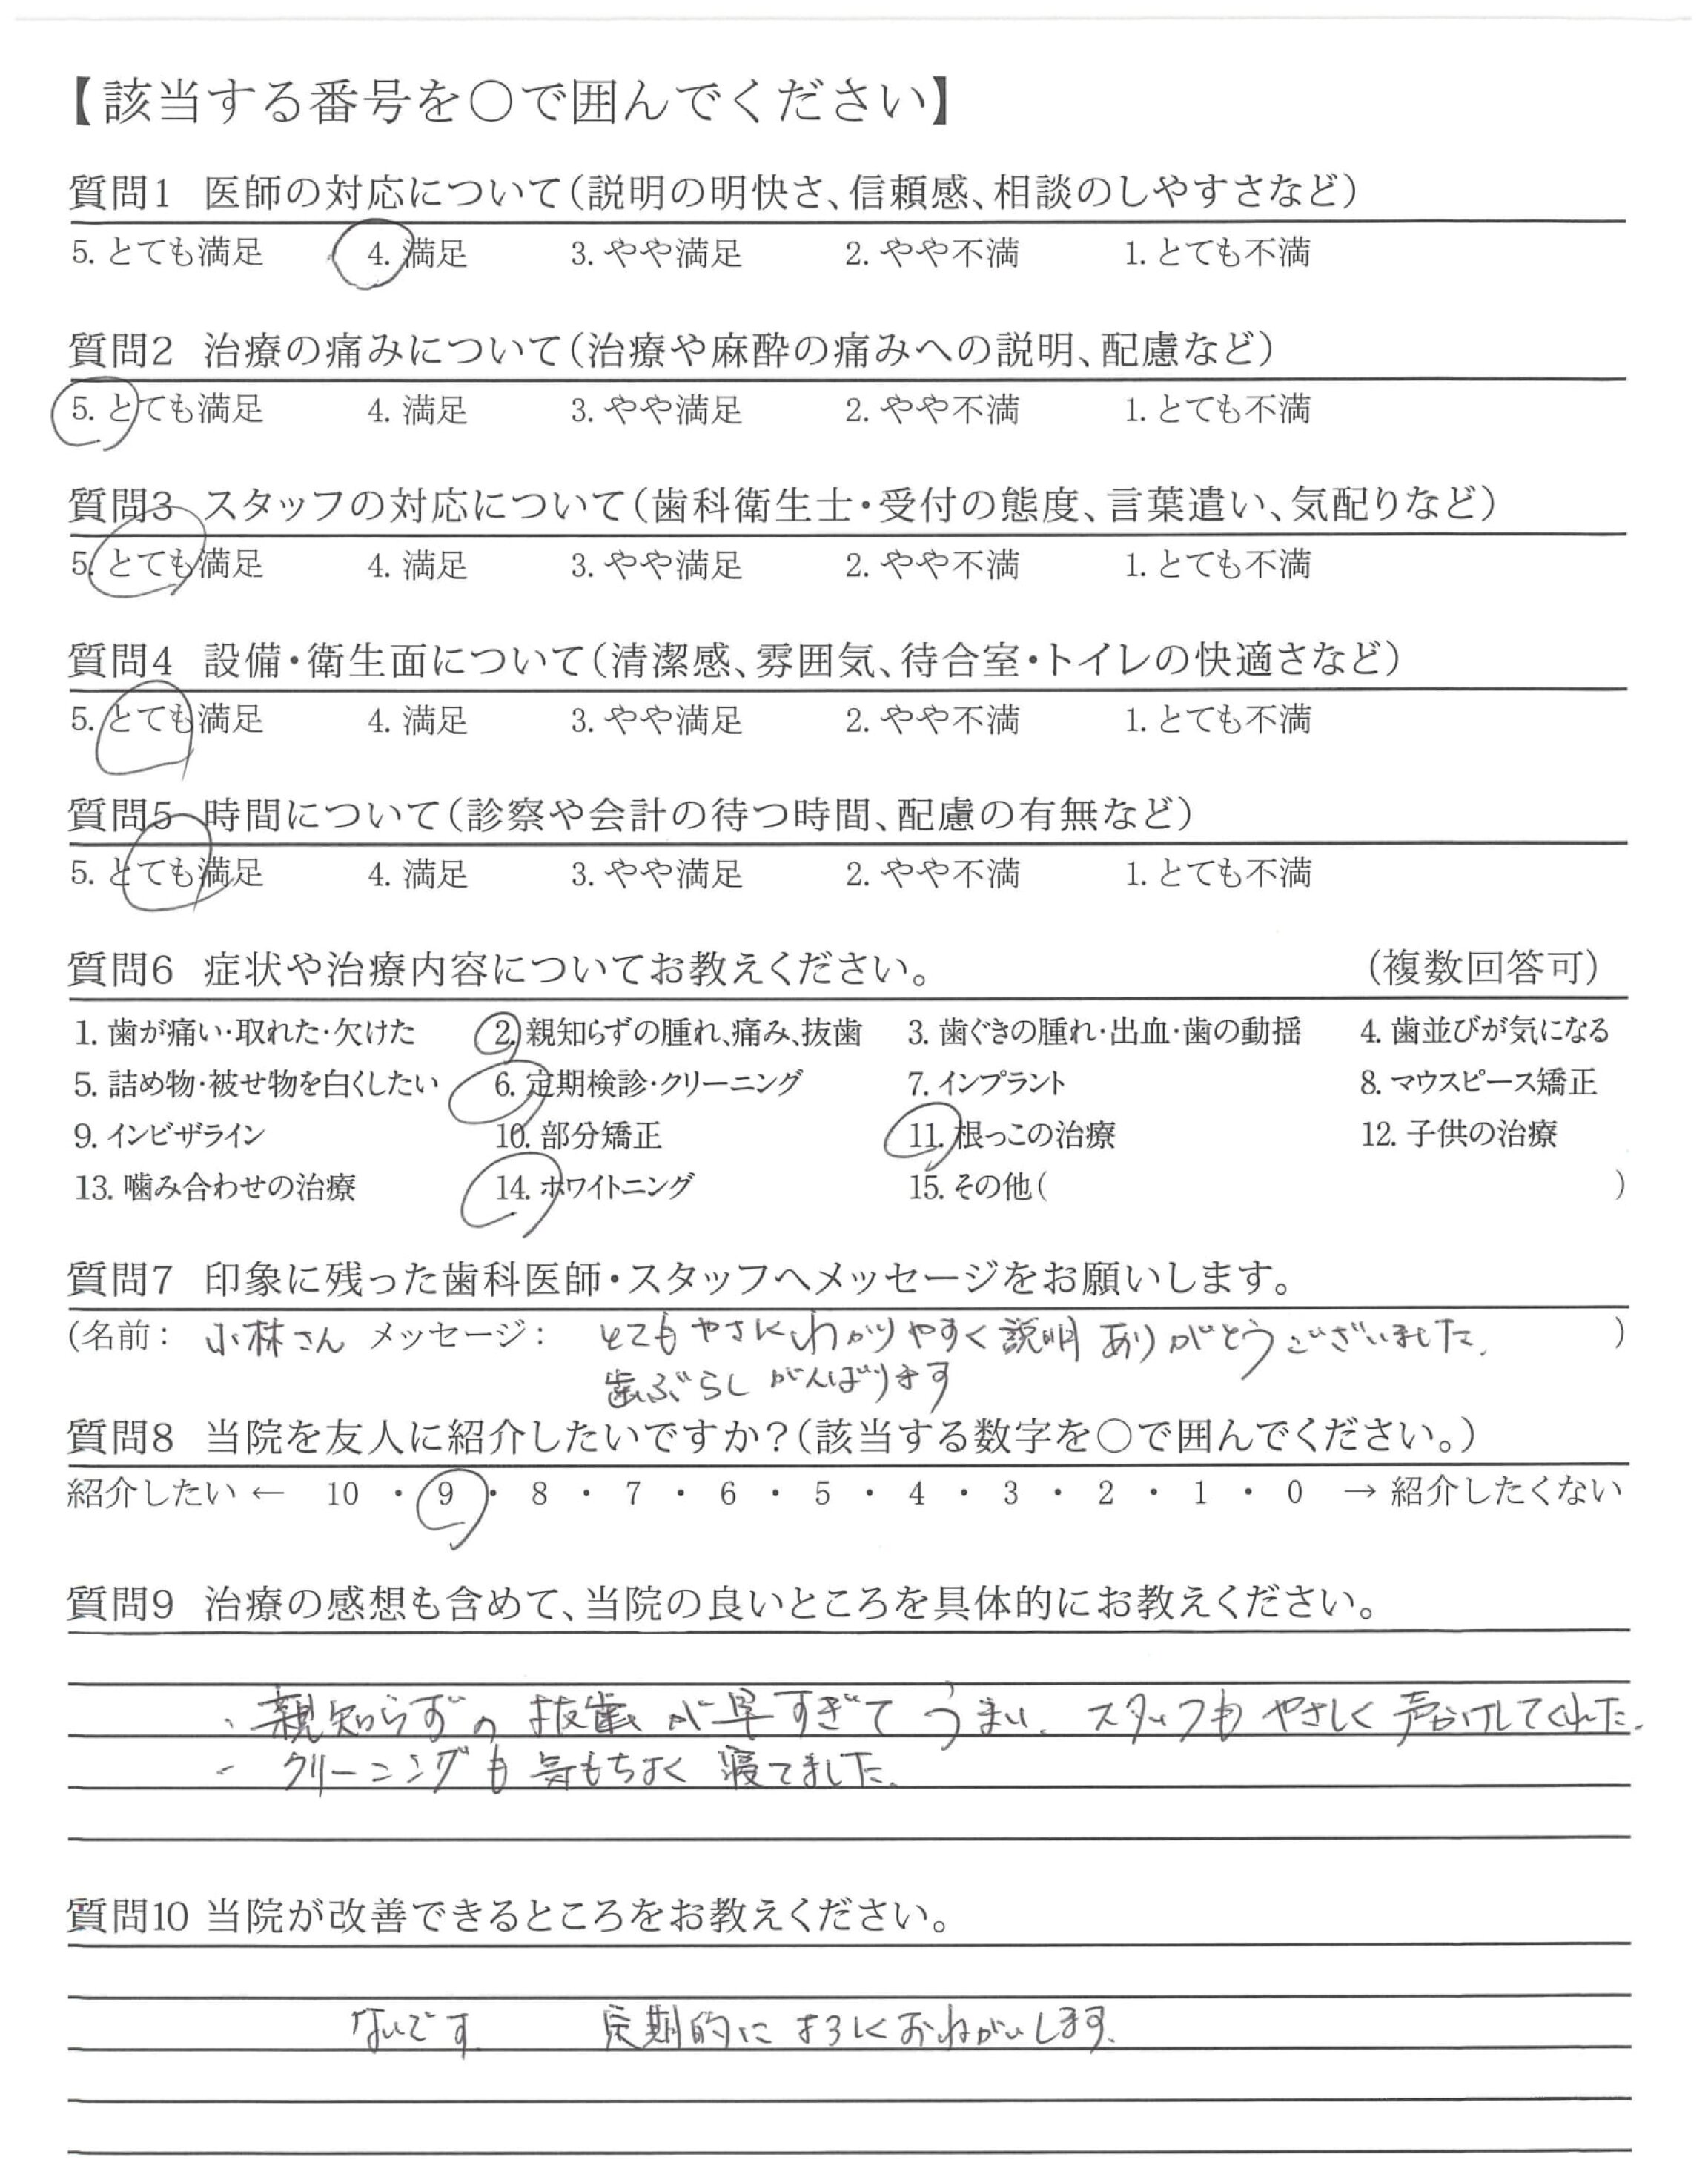 【該当する番号を○で囲んでください】
質問1 医師の対応について(説明の明快さ、信頼感、相談のしやすさなど)
5. とても満足 4. 満足 3. やや満足 2. やや不満 1. とても不満
質問2 治療の痛みについて(治療や麻酔の痛みへの説明、配慮など)
5. とても満足 4. 満足 3. やや満足 2. やや不満 1. とても不満
質問3 スタッフの対応について(歯科衛生士・受付の態度、言葉遣い、気配りなど)
5. とても満足 4. 満足 3. やや満足 2. やや不満 1. とても不満
質問4 設備・衛生面について(清潔感、雰囲気、待合室・トイレの快適さなど)
5. とても満足 4. 満足 3. やや満足 2. やや不満 1. とても不満
質問5 時間について(診察や会計の待つ時間、配慮の有無など)
5. とても満足 4. 満足 3. やや満足 2. やや不満 1. とても不満
質問6 症状や治療内容についてお教えください。 (複数回答可)
1. 歯が痛い・取れた・欠けた 2. 親知らずの腫れ、痛み、抜歯 3. 歯ぐきの腫れ・出血・歯の動揺 4. 歯並びが気になる
5. 詰め物・被せ物を白くしたい 6. 定期検診・クリーニング 7. インプラント 8. マウスピース矯正
9. インビザライン 10. 部分矯正 11. 根っこの治療 12. 子供の治療
13. 噛み合わせの治療 14. ホワイトニング 15. その他( )
質問7 印象に残った歯科医師・スタッフへメッセージをお願いします。
(名前: 小林さん メッセージ: とてもやさしくわかりやすく説明ありがとうございました. )
歯ぶらしがんばります
質問8 当院を友人に紹介したいですか?(該当する数字を○で囲んでください。)
紹介したい ← 10 ・ 9 ・ 8 ・ 7 ・ 6 ・ 5 ・ 4 ・ 3 ・ 2 ・ 1 ・ 0 → 紹介したくない
質問9 治療の感想も含めて、当院の良いところを具体的にお教えください。
・親知らずの抜歯が早すぎてうまい. スタッフもやさしく声かけしてくれた.
・クリーニングも気もちよく寝てました.
質問10 当院が改善できるところをお教えください。
ないです 定期的によろしくおねがいします.